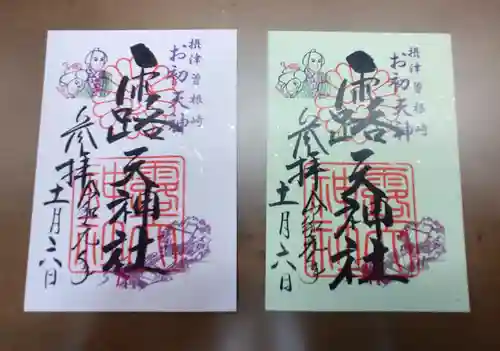 摂津 曽根崎
お初天神
露天神社
参拝
十一月二六日
摂津 曽根崎
お初天神
露天神社
参拝
十一月二六日